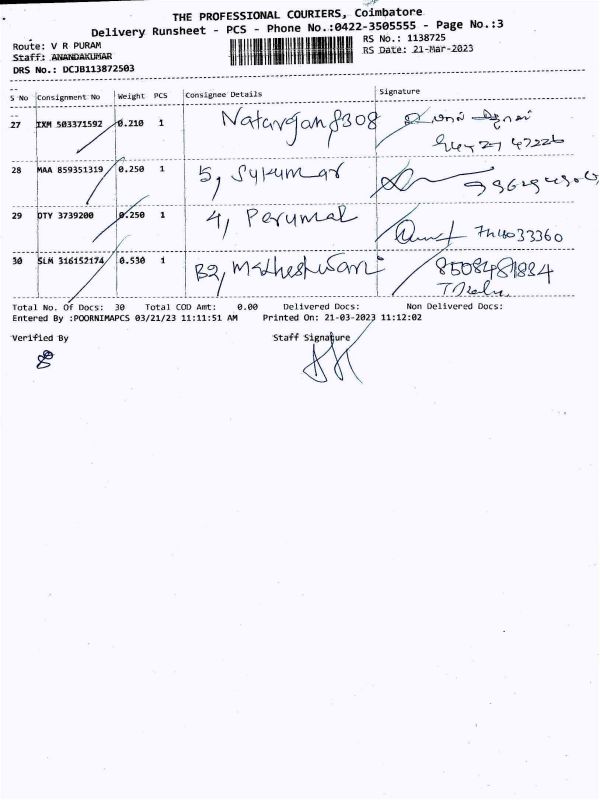 THE PROFESSIONAL COURIERS, Coimbatore
Delivery Runsheet - PCS - Phone No.:0422-3505555 - Page No.:3
Route: V R PURAM
RS No.: 1138725
Staff: ANANDAKUMAR
RS Date: 21-Mar-2023
DRS No.: DCJB113872503
S No Consignment No Weight PCS Consignee Details Signature
27 IXM 503371592 0.210 1 Natarajan 8308
28 MAA 859351319 0.250 1 5, Sukumar
29 OTY 3739200 0.250 1 4, Perumal
30 SLM 316152174 0.530 1 B2, Matheshwari 8508481884
Total No. Of Docs: 30 Total COD Amt: 0.00 Delivered Docs: Non Delivered Docs:
Entered By :POORNIMAPCS 03/21/23 11:11:51 AM Printed On: 21-03-2023 11:12:02
Verified By Staff Signature